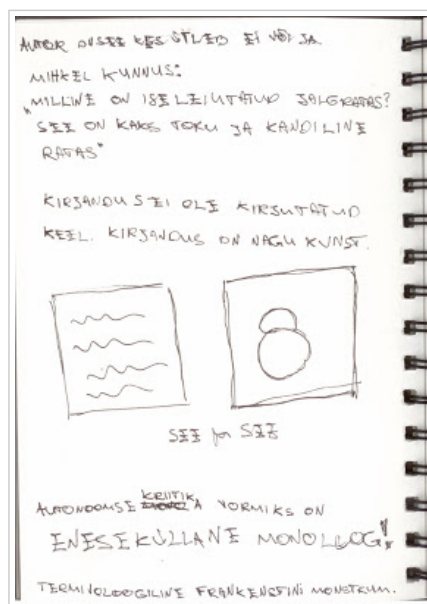 AUTOR ON SEE KES ÜTLEB EI VÕI JA.
MIHKEL KUNNUS:
"MILLINE ON ISELEIUTATUD JALGRATAS?
SEE ON KAKS TORU JA KANDILINE
RATAS"
KIRJANDUS EI OLE KIRJUTATUD
KEEL. KIRJANDUS ON NAGU KUNST.
SEE ja SEE
AUTONOOMSE KRIITIKA VORMIKS ON
ENESEKÜLLANE MONOLOOG!
TERMINOLOOGILINE FRANKENSTINI MONSTRUM.